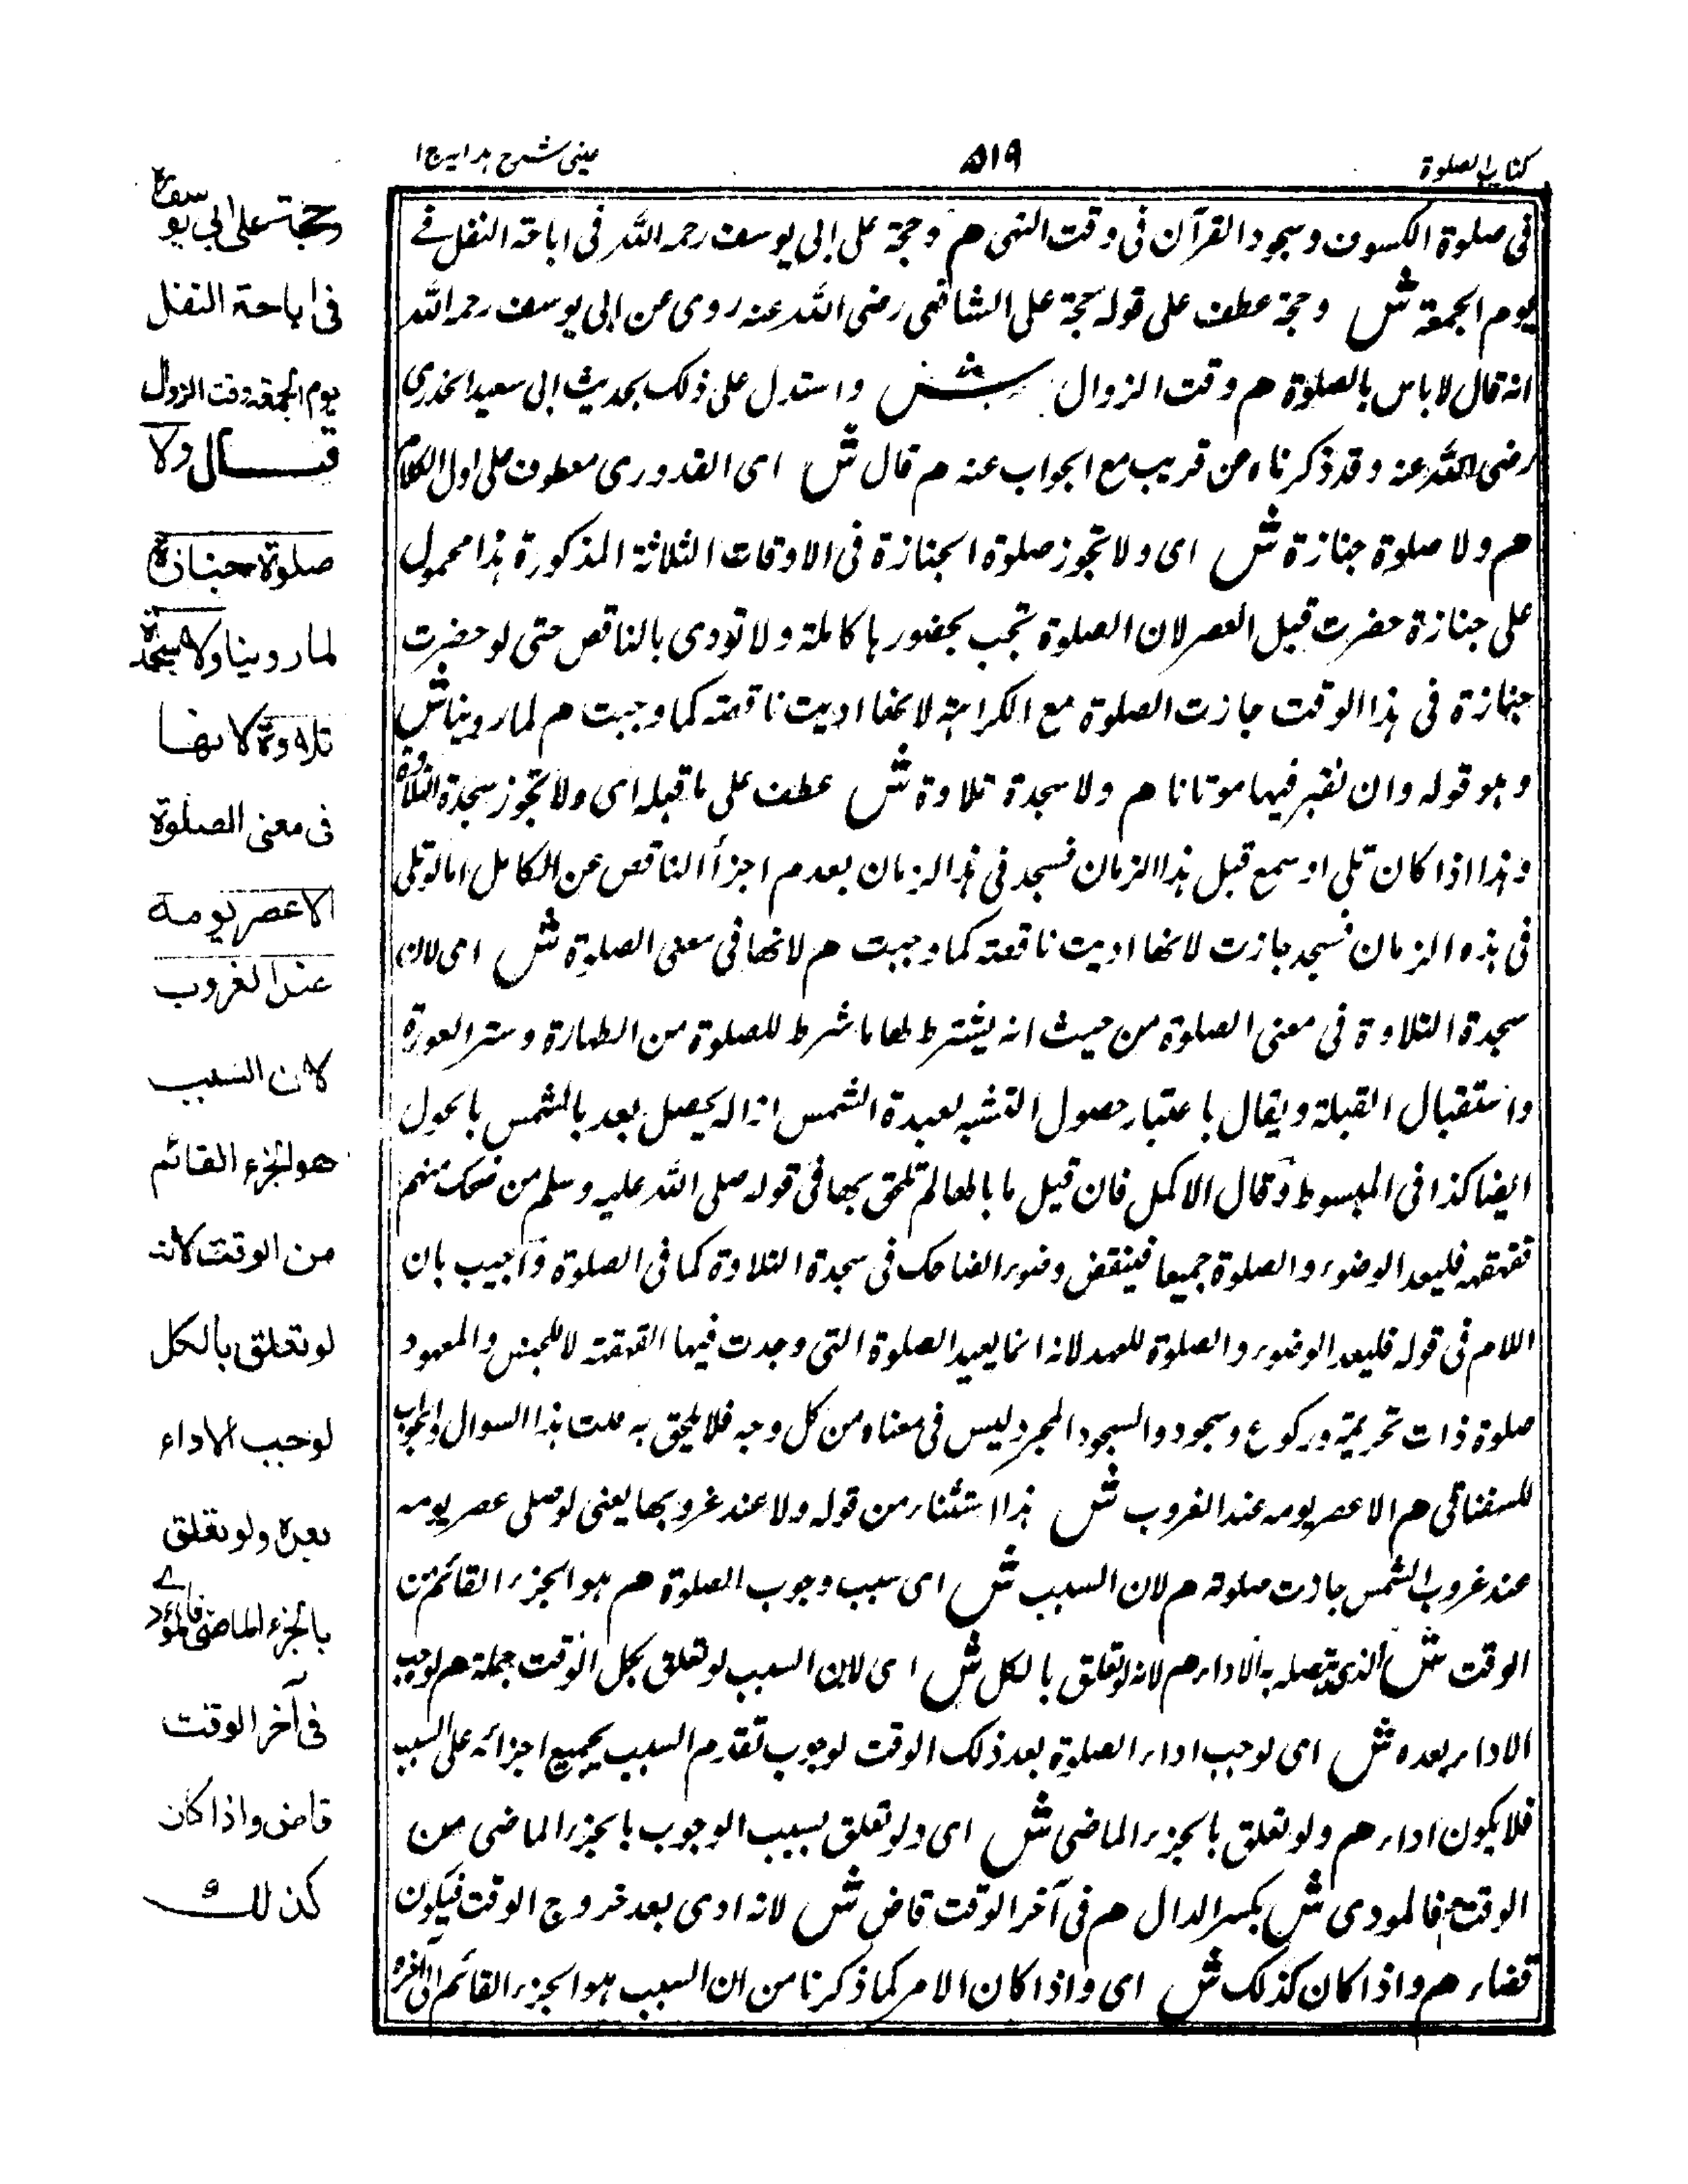 كتاب الصلوة
٥١٩
عينى شرح هدايه ج ١
فى صلوة الكسوف وسجود القرآن فى وقت النهى هم وحجة على ابى يوسف رحمه الله فى اباحة النفل فے
يوم الجمعة ش وحجة عطف على قوله حجة على الشافعى رضى الله عنه روى عن ابى يوسف رحمه الله
انه قال لا باس بالصلوة هم وقت الزوال ش واستدل على ذلك بحديث ابى سعيد الخدرى
رضى الله عنه وقد ذكرناه من قريب مع الجواب عنه م قال ش اى القدورى معطوف على اول الكلام
هم ولا صلوة جنازة ش اى ولا تجوز صلوة الجنازة فى الاوقات الثلاثة المذكورة هذا محمول
على جنازة حضرت قبل العصر لان الصلوة تجب بحضورها كاملة ولا تودى بالناقص حتى لو حضرت
جنازة فى هذا الوقت جازت الصلوة مع الكراهة لانها اديت ناقصة كما وجبت هم لما روينا ش
وهو قوله وان نقبر فيها موتانا م ولا سجدة تلاوة ش عطف على ما قبله اى ولا تجوز سجدة التلاوة
وهذا اذا كان تلى او سمع قبل هذا الزمان فسجد فى هذا الزمان بعدم اجزأ الناقص عن الكامل اما لو تلى
فى هذه الزمان فسجد جازت لانها اديت ناقصة كما وجبت هم لانها فى معنى الصلوة ش اى لان
سجدة التلاوة فى معنى الصلوة من حيث انه يشترط لها ما شرط للصلوة من الطهارة وستر العورة
واستقبال القبلة ويقال باعتبار حصول التشبه لعبدة الشمس
ايضا كذا فى المبسوط وقال الاكمل فان قيل ما بالها لم تلحق بها فى قوله صلى الله عليه وسلم من ضحك منهم
قهقهة فليعد الوضوء والصلوة جميعا فينقض وضوء الضاحك فى سجدة التلاوة كما فى الصلوة واجيب بان
اللام فى قوله فليعد الوضوء والصلوة للعهد لانه انما يعيد الصلوة التى وجدت فيها القهقهة لا للجنس والمعهود
صلوة ذات تحريمة وركوع وسجود والسجود المجرد ليس فى معناه من كل وجه فلا يلحق به قلت هذا السوال والجواب
للسغناقى هم الا عصر يومه عند الغروب ش هذا استثناء من قوله ولا عند غروبها يعنى لو صلى عصر يومه
عند غروب الشمس جازت صلوته هم لان السبب ش اى سبب وجوب الصلوة هم هو الجزء القائم من
الوقت ش الذى يتصله به الاداء هم لانه لو تعلق بالكل ش اى لان السبب لو تعلق بكل الوقت جملة هم لوجب
الاداء بعده ش اى لوجب اداء الصلوة بعد ذلك الوقت لوجوب تقدم السبب بجميع اجزائه على السبب
فلا يكون اداء هم ولو تعلق بالجزء الماضى ش اى ولو تعلق بسبب الوجوب بالجزء الماضى من
الوقت م فالمودى ش بكسر الدال هم فى آخر الوقت قاض ش لانه ادى بعد خروج الوقت فيكون
قضاء هم واذا كان كذلك ش اى واذا كان الامر كما ذكرنا من ان السبب هو الجزء القائم الى آخره
وحجة على ابى يوسف
فى اباحة النفل
يوم الجمعة وقت الزوال
قــال ولا
صلوة جنازة
لما روينا ولا سجدة
تلاوة لانها
فى معنى الصلوة
الا عصر يومه
عند الغروب
لان السبب
هو الجزء القائم
من الوقت لانه
لو تعلق بالكل
لوجب الاداء
بعده ولو تعلق
بالجزء الماضى فالمؤدے
فى آخر الوقت
قاض واذا كان
كذلك